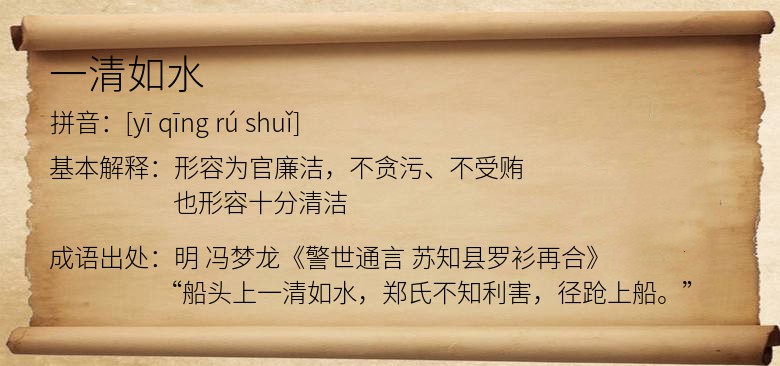 一清如水
拼音：[yī qīng rú shuǐ]
基本解释：形容为官廉洁，不贪污、不受贿
也形容十分清洁
成语出处：明 冯梦龙《警世通言 苏知县罗衫再合》
“船头上一清如水，郑氏不知利害，径跄上船。”